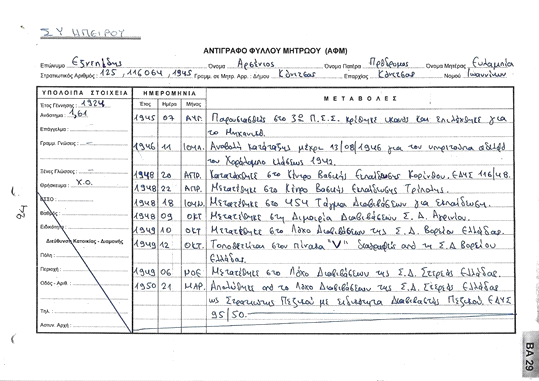 ΣΥ ΗΠΕΙΡΟΥ
ΑΝΤΙΓΡΑΦΟ ΦΥΛΛΟΥ ΜΗΤΡΩΟΥ (ΑΦΜ)
Επώνυμο Εξηντρίδης Όνομα Αρσένιος Όνομα Πατέρα Πρόδρομος Όνομα Μητέρας Ευλαμπία
Στρατιωτικός Αριθμός: 125, 116064, 1945 Γραμμ. σε Μητρ. Αρρ.: Δήμου Κόνιτσας Επαρχίας Κόνιτσας Νομού Ιωαννίνων
ΥΠΟΛΟΙΠΑ ΣΤΟΙΧΕΙΑ ΗΜΕΡΟΜΗΝΙΑ ΜΕΤΑΒΟΛΕΣ
Έτος Γέννησης: 1924 Έτος Ημέρα Μήνας
Ανάστημα: 1,61
Επάγγελμα:
Γραμμ. Γνώσεις:
Ξένες Γλώσσες:
Θρήσκευμα: Χ.Ο.
ΕΣΣΟ
Βαθμός:
Ειδικότητα:
Διεύθυνση Κατοικίας - Διαμονής
Πόλη:
Περιοχή:
Οδός - Αριθ.:
Τηλ.:
Αστυν. Αρχή:
1945 07 ΑΥΓ. Παρουσιασθείς στο 3ο Π.Σ.Σ. κρίθηκε ικανός και επιλέχθηκε για
το Μηχανικό.
1946 11 ΙΟΥΛ. Αναβολή κατάταξης μέχρι 13/08/1946 για τον υπηρετούντα αδελφό
του Χαράλαμπο κλάσεως 1942.
1948 20 ΑΠΡ. Κατατάχθηκε στο Κέντρο Βασικής Εκπαίδευσης Κορίνθου. ΕΔΥΣ 116/48.
1948 22 ΑΠΡ. Μετατέθηκε στο Κέντρο Βασικής Εκπαίδευσης Τρίπολης.
1948 18 ΙΟΥΝ. Μετατέθηκε στο 454 Τάγμα Διαβιβάσεων για εκπαίδευση.
1948 09 ΟΚΤ Μετατέθηκε στη Διμοιρία Διαβιβάσεων Σ.Δ.
1949 10 ΟΚΤ Μετατέθηκε στο Λόχο Διαβιβάσεων της Σ.Δ. Βορείου Ελλάδας.
1949 12 ΟΚΤ. Τοποθετείται στον πίνακα "V" διαγραφείς από τη Σ.Δ Βορείου
Ελλάδας.
1949 06 ΝΟΕ Μετατέθηκε στο Λόχο Διαβιβάσεων της Σ.Δ. Στερεάς Ελλάδας.
1950 21 ΜΑΡ. Απολύθηκε από το Λόχο Διαβιβάσεων της Σ.Δ. Στερεάς Ελλάδας
ως Στρατιώτης Πεζικού με ειδικότητα Διαβιβαστής Πεζικού. ΕΔΥΣ
95/50.
ΒΑ 29